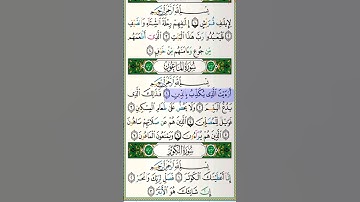 بِسْمِ اللَّهِ الرَّحْمَٰنِ الرَّحِيمِ
لِإِيلَافِ قُرَيْشٍ ١ إِيلَافِهِمْ رِحْلَةَ الشِّتَاءِ وَالصَّيْفِ ٢
فَلْيَعْبُدُوا رَبَّ هَٰذَا الْبَيْتِ ٣ الَّذِي أَطْعَمَهُم
مِّن جُوعٍ وَآمَنَهُم مِّنْ خَوْفٍ ٤
سُورَةُ الْمَاعُونِ
بِسْمِ اللَّهِ الرَّحْمَٰنِ الرَّحِيمِ
أَرَأَيْتَ الَّذِي يُكَذِّبُ بِالدِّينِ ١ فَذَٰلِكَ الَّذِي
يَدُعُّ الْيَتِيمَ ٢ وَلَا يَحُضُّ عَلَىٰ طَعَامِ الْمِسْكِينِ ٣
فَوَيْلٌ لِّلْمُصَلِّينَ ٤ الَّذِينَ هُمْ عَن صَلَاتِهِمْ سَاهُونَ ٥
الَّذِينَ هُمْ يُرَاءُونَ ٦ وَيَمْنَعُونَ الْمَاعُونَ ٧
سُورَةُ الْكَوْثَرِ
بِسْمِ اللَّهِ الرَّحْمَٰنِ الرَّحِيمِ
إِنَّا أَعْطَيْنَاكَ الْكَوْثَرَ ١ فَصَلِّ لِرَبِّكَ وَانْحَرْ ٢
إِنَّ شَانِئَكَ هُوَ الْأَبْتَرُ ٣